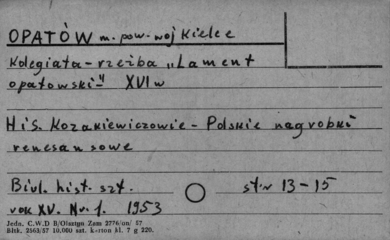 OPATÓW m. pow. woj Kielce
Kolegiata - rzeźba „Lament
opatowski" XVI w
H i S. Kozakiewiczowie - Polskie nagrobki
renesansowe
Biul. hist. szt. str 13-15
rok XV. Nr. 1. 1953
Jedn. C.W.D B/Olsztyn Zam 2776/on/ 57
Bltk. 2563/57 10.000 szt. karton kl. 7 g 220.